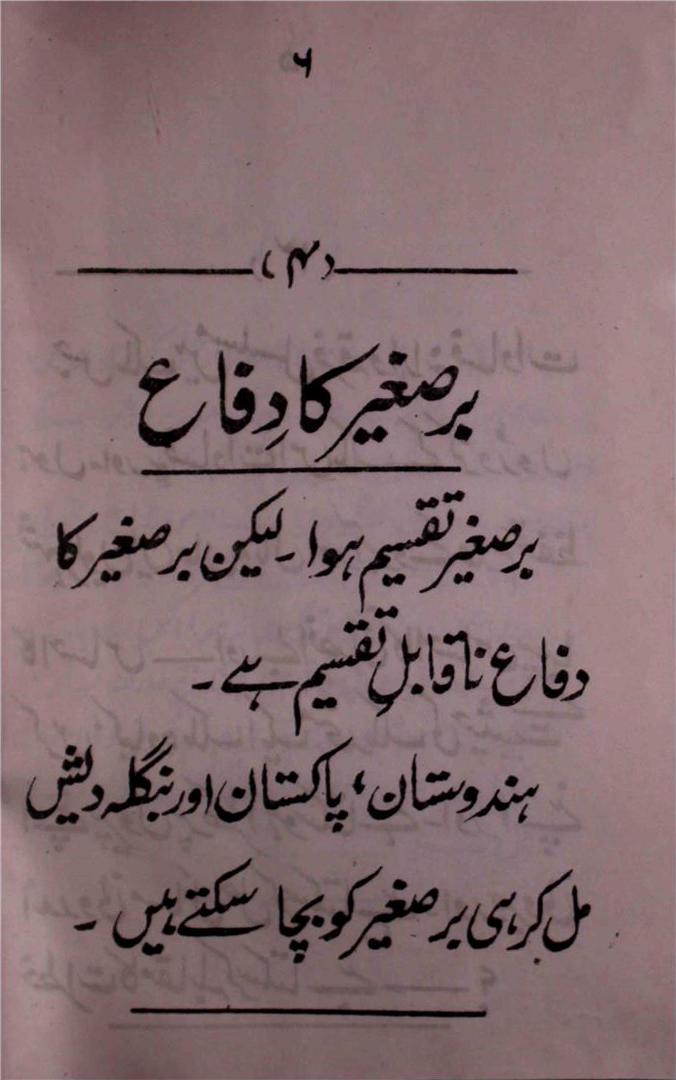 ۶
(۴)
برصغیر کا دِفاع
برصغیر تقسیم ہوا۔ لیکن برصغیر کا
دفاع ناقابلِ تقسیم ہے۔
ہندوستان، پاکستان اور بنگلہ دلیش
مل کر ہی برصغیر کو بچا سکتے ہیں۔